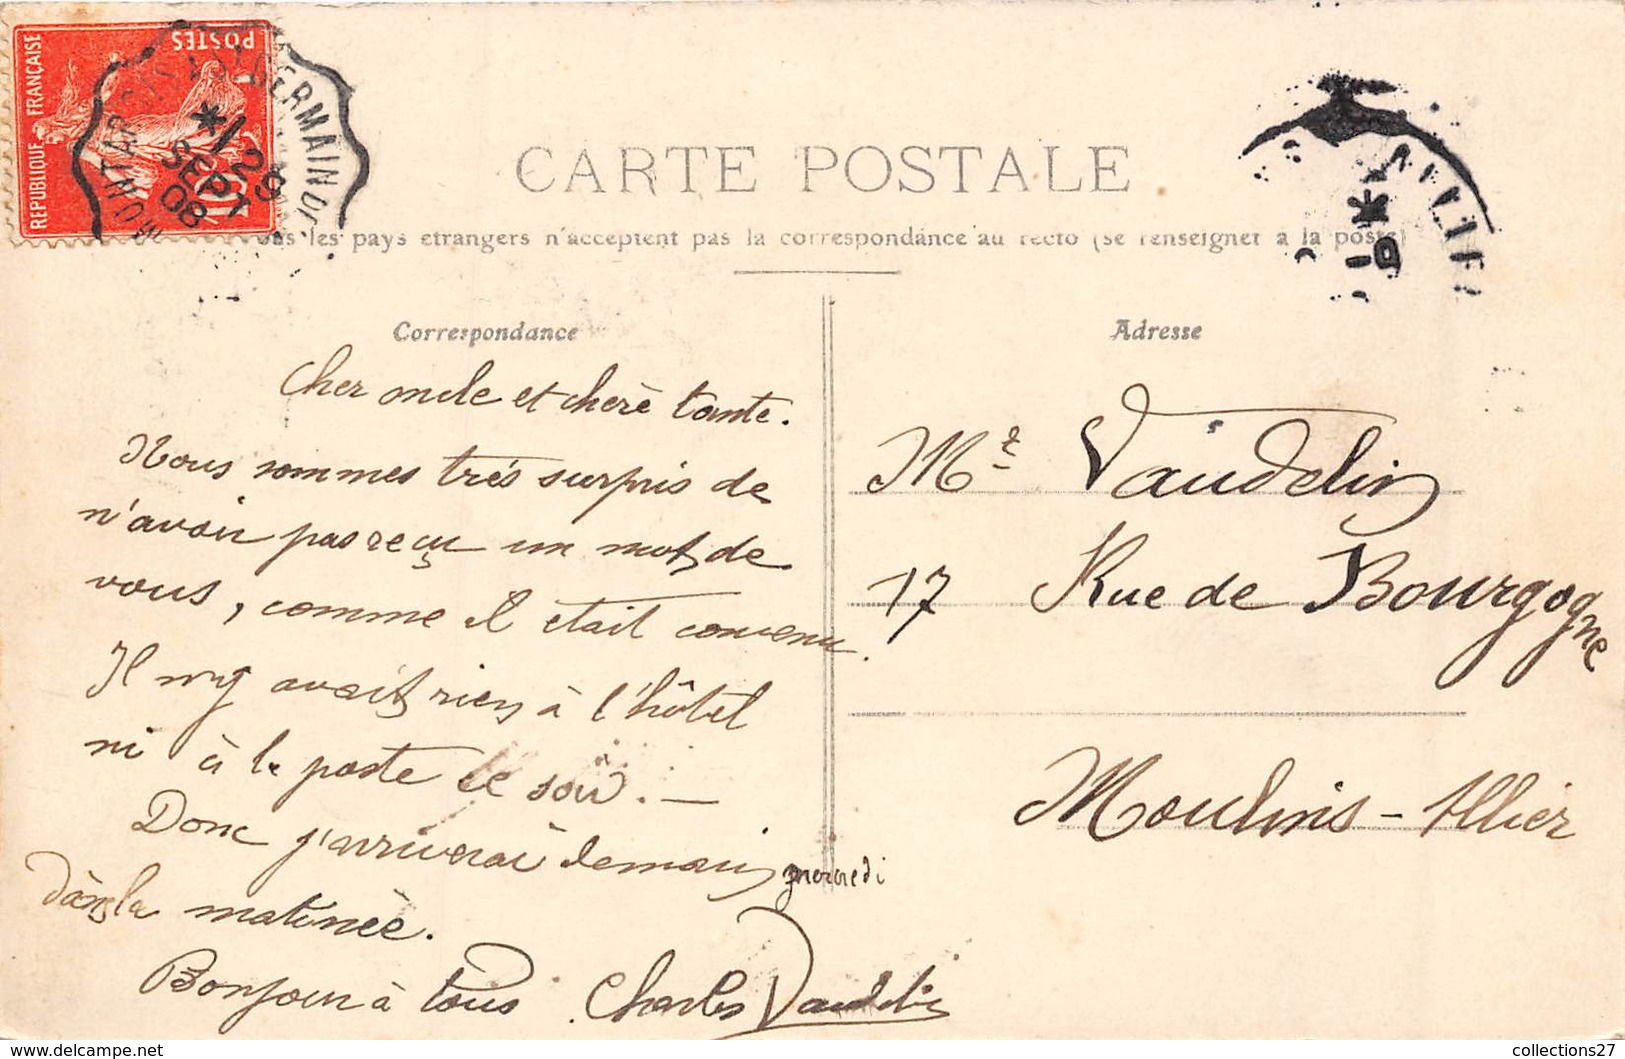 REPUBLIQUE FRANÇAISE
POSTES
10
MONTARGIS A ST GERMAIN DE
29
SEPT
08
CARTE POSTALE
les pays étrangers n'acceptent pas la correspondance au recto (se renseigner à la poste)
Correspondance
Cher oncle et chère tante.
Nous sommes très surpris de
n'avoir pas reçu un mot de
vous, comme il était convenu.
Il n'y avait rien à l'hôtel
ni à la poste ce soir. —
Donc j'arriverai demain mercredi
dans la matinée.
Bonjour à tous. Charles Vaudelin
Adresse
Mr Vaudelin
17 Rue de Bourgogne
Moulins - Allier
collections27